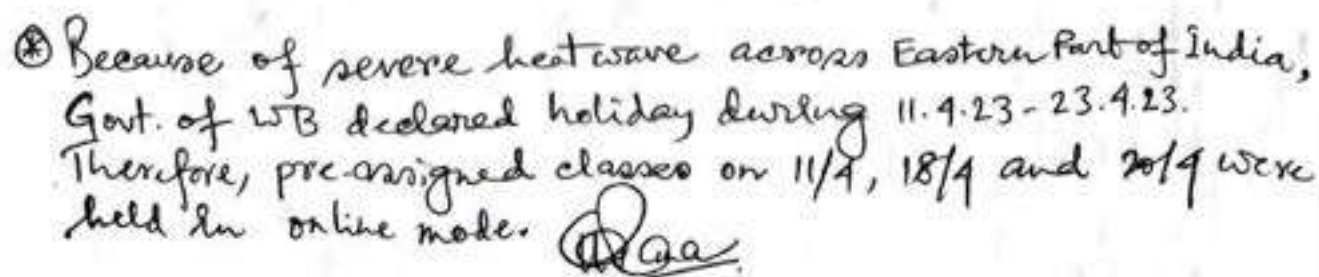 ⊛ Because of severe heatwave across Eastern Part of India,
Govt. of WB declared holiday during 11.4.23 - 23.4.23.
Therefore, pre-assigned classes on 11/4, 18/4 and 20/4 were
held in online mode.